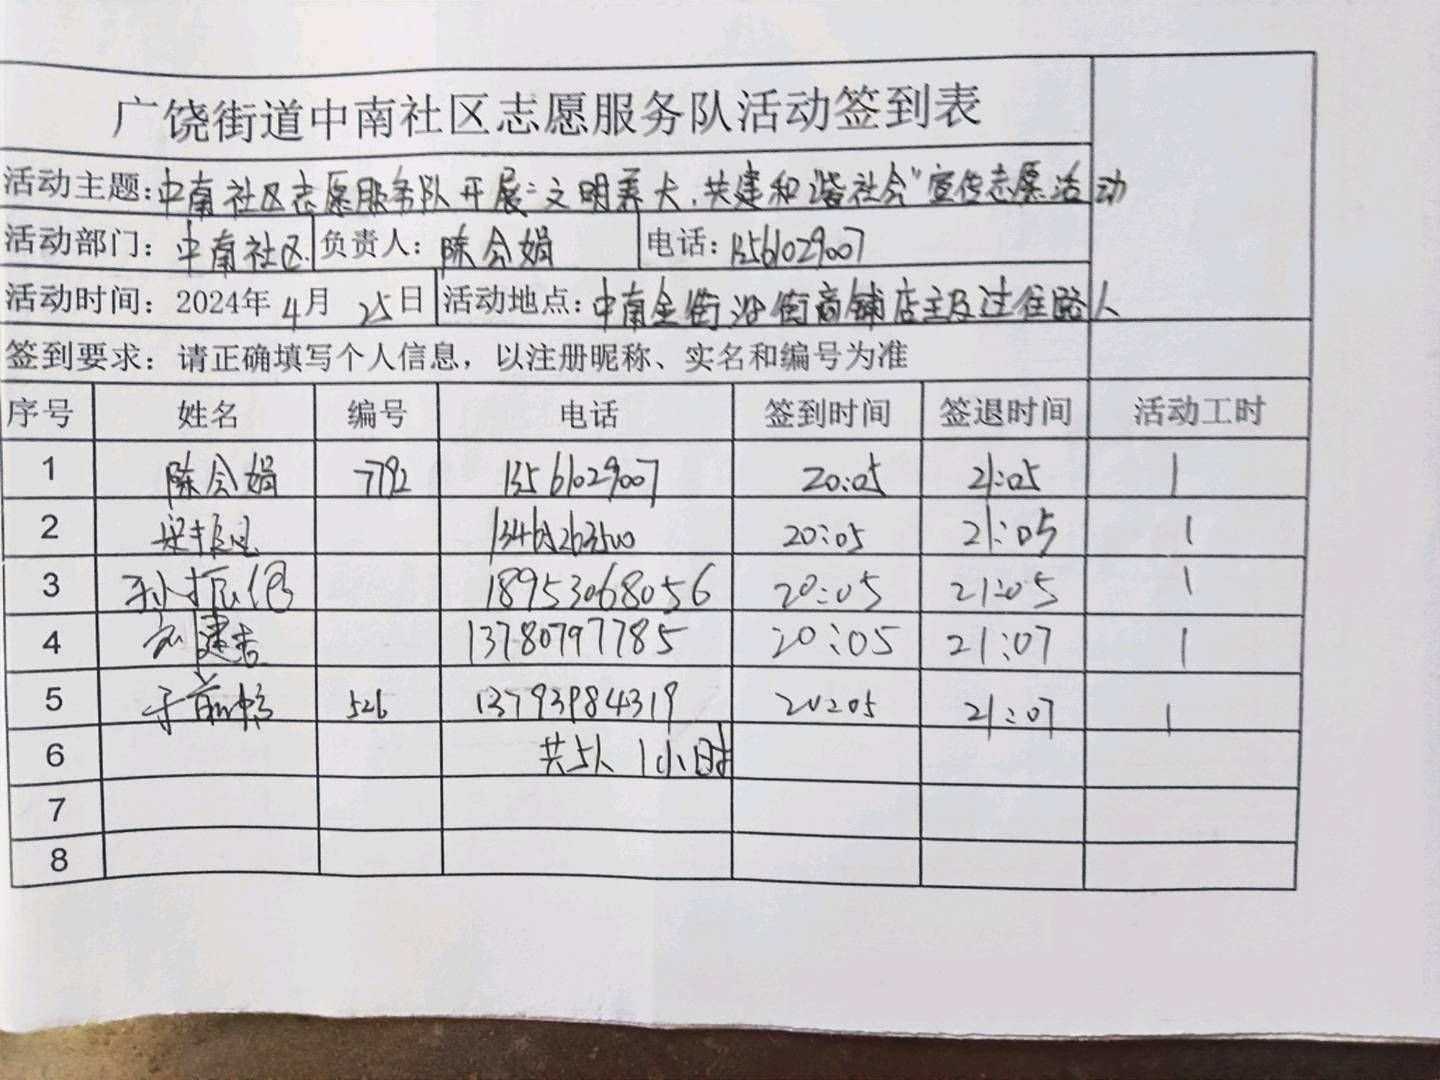 广饶街道中南社区志愿服务队活动签到表
活动主题:中南社区志愿服务队开展“文明养犬,共建和谐社会”宣传志愿活动
活动部门:中南社区 负责人:陈令娟 电话:13561029007
活动时间:2024年4月25日 活动地点:中南全街沿街商铺店主及过往路人
签到要求:请正确填写个人信息,以注册昵称、实名和编号为准
序号 姓名 编号 电话 签到时间 签退时间 活动工时
1 陈令娟 7792 13561029007 20:05 21:05 1
2 20:05 21:05 1
3 18953068056 20:05 21:05 1
4 刘建吉 13780797785 20:05 21:07 1
5 526 13793984319 20:05 21:07 1
6 共5人 1小时
7
8